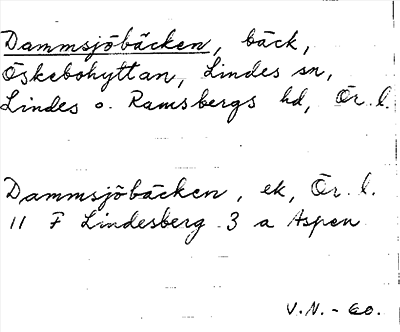 Dammsjöbäcken, bäck,
Öskebohyttan, Lindes sn,
Lindes o. Ramsbergs hd, Ör. l.
Dammsjöbäcken, ek, Ör. l.
11 F Lindesberg 3 a Aspen
V.N. - 60.